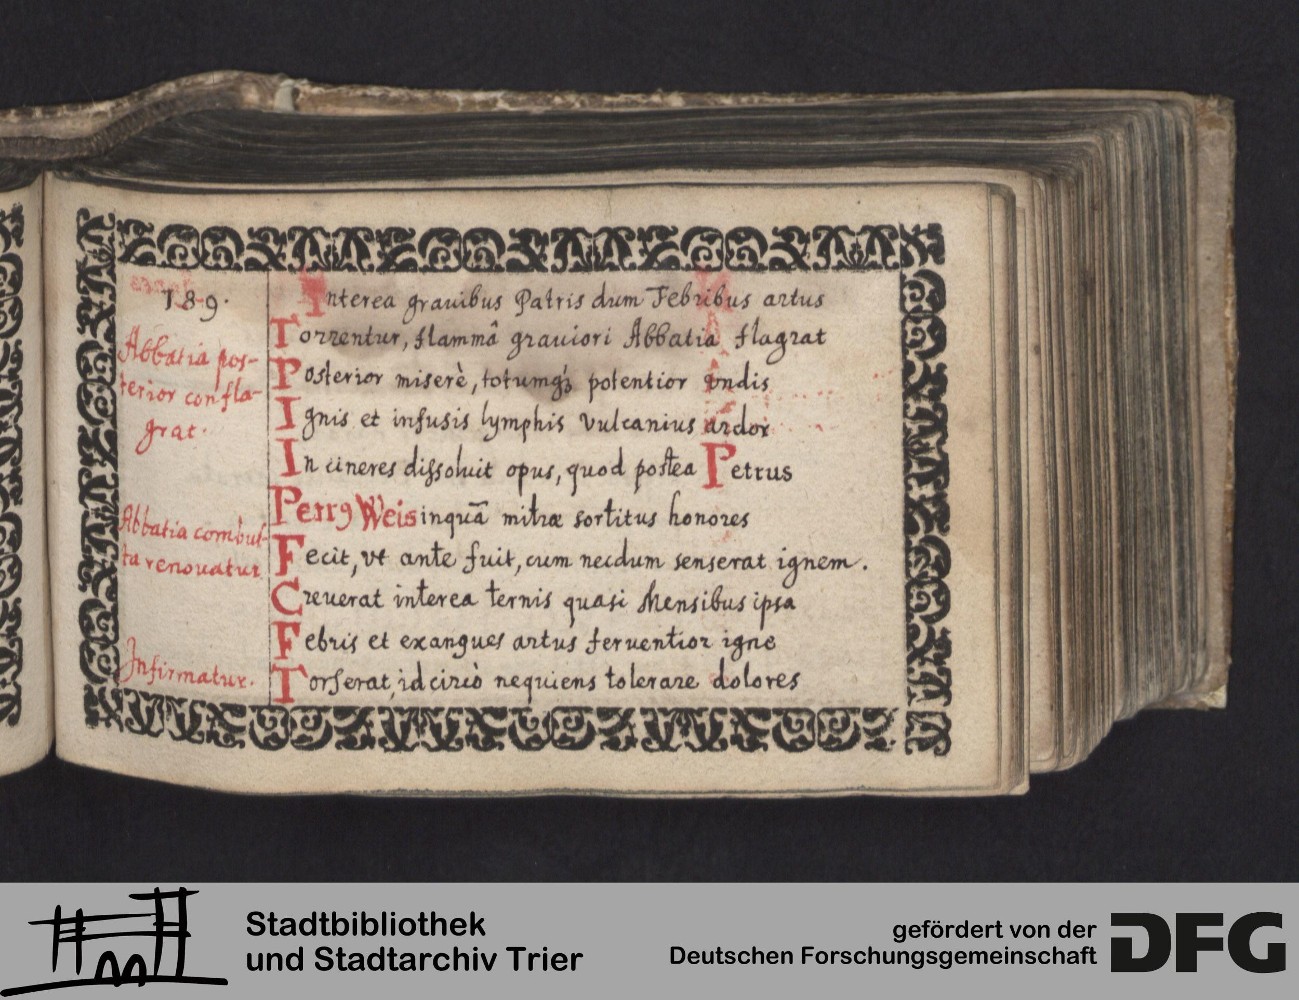 189.
Interea grauibus Patris dum Febribus artus
Torrentur, flammâ grauiori Abbatia flagrat
Abbatia pos-
terior confla-
grat.
Posterior miserè, totumq́ꝫ potentior vndis
Ignis et infusis lymphis Vulcanius ardor
In cineres dissoluit opus, quod postea Petrus
Abbatia combus-
ta renouatur
Weis inquā mitræ sortitus honores
Fecit, vt ante fuit, cum necdum senserat ignem.
Creuerat interea ternis quasi Mensibus ipsa
Febris et exangues artus feruentior igne
Infirmatur.
Torserat, idcircò nequiens tolerare dolores
Stadtbibliothek
und Stadtarchiv Trier
gefördert von der
Deutschen Forschungsgemeinschaft
DFG